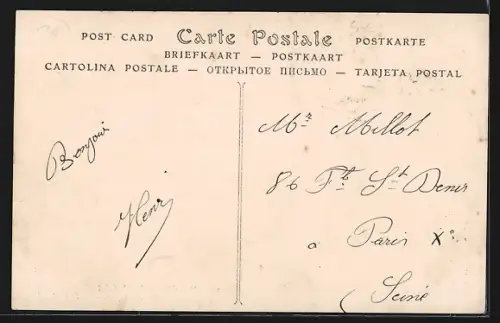 POST CARD Carte Postale POSTKARTE
BRIEFKAART — POSTKAART
CARTOLINA POSTALE — ОТКРЫТОЕ ПИСЬМО — TARJETA POSTAL
Bonjour
Henri
Mr Millot
86 Fg St Denis
a Paris Xe
Seine